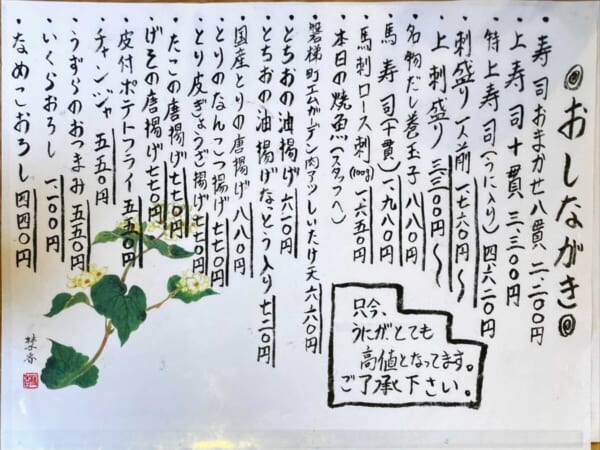 ◎おしながき◎
・寿司おまかせ八貫 二、二〇〇円
・上寿司十貫 三、三〇〇円
・特上寿司(うに入り) 四、六二〇円
・刺盛り一人前 一、七六〇円〜
・上刺盛り 三、三〇〇円〜
・名物だし巻玉子 八八〇円
・馬寿司(十貫) 一、九八〇円
・馬刺ロース刺(100g) 一、六五〇円
・本日の焼魚(スタッフへ)
・磐梯町エムガーデン内アツシィしいたけ天 六六〇円
・とちおの油揚げ 六一〇円
・とちおの油揚げなっとう入り 七二〇円
・国産とりの唐揚げ 八八〇円
・とりのなんこつ揚げ 七七〇円
・とり皮ぎょうざ揚げ 七七〇円
・たこの唐揚げ 七七〇円
・げその唐揚げ 七七〇円
・皮付ポテトフライ 五五〇円
・チャンジャ 五五〇円
・うずらのおつまみ 五五〇円
・いくらおろし 一、一〇〇円
・なめこおろし 四四〇円
只今、
うにがとても
高値となってます。
ご了承下さい。